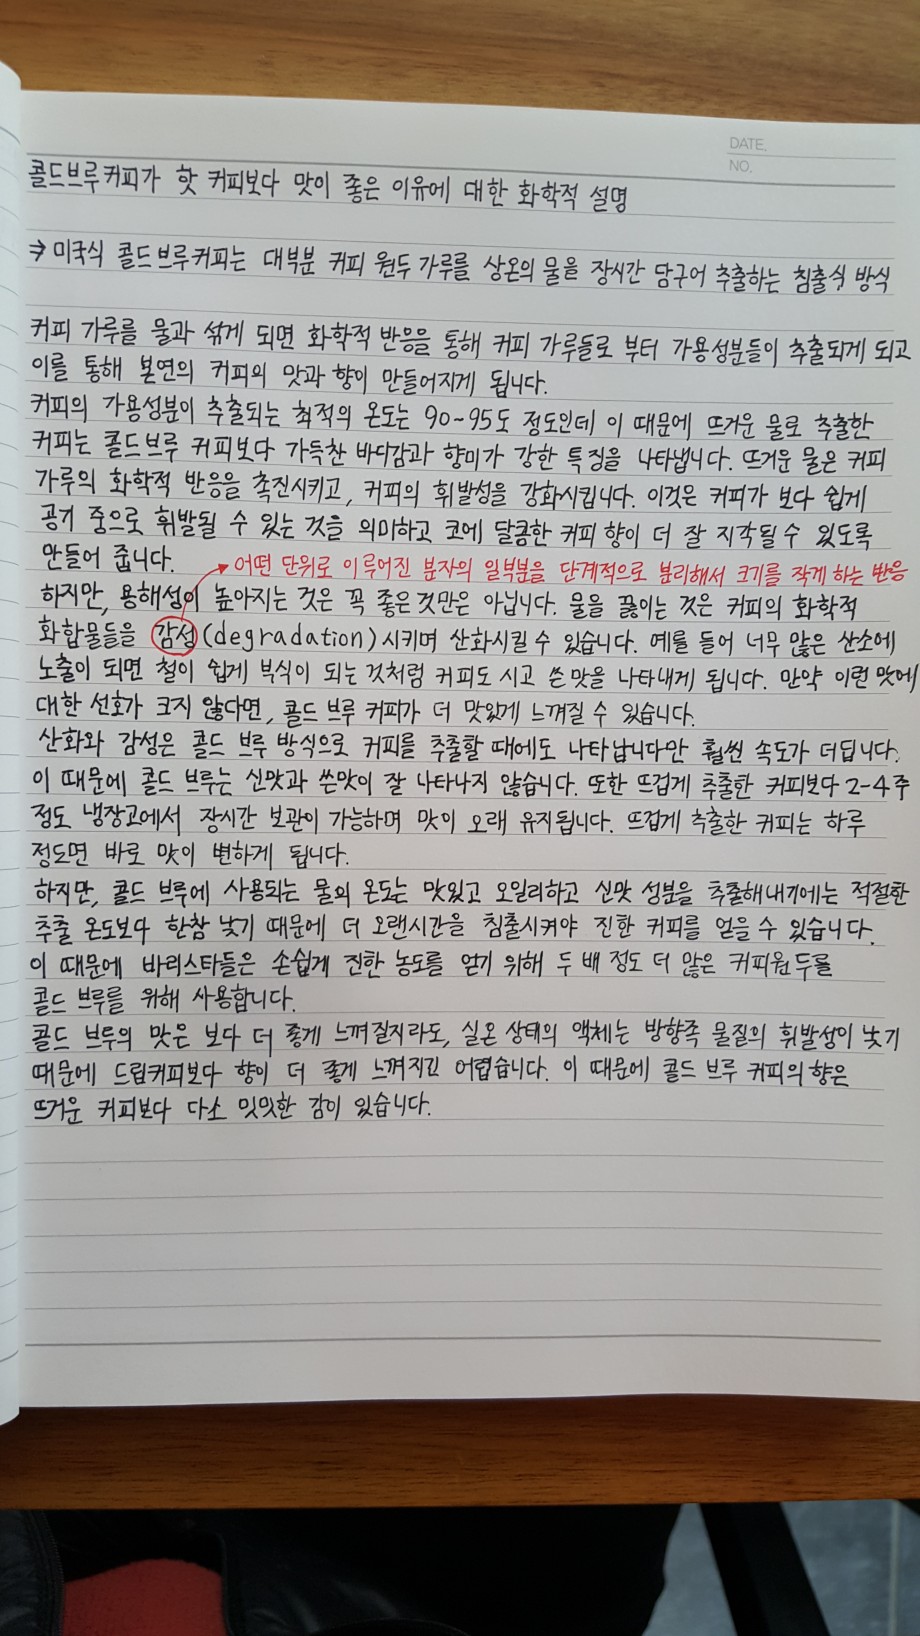 DATE.
NO.
콜드브루커피가 핫 커피보다 맛이 좋은 이유에 대한 화학적 설명
⇒ 미국식 콜드브루커피는 대부분 커피 원두가루를 상온의 물을 장시간 담구어 추출하는 침출식 방식
커피 가루를 물과 섞게 되면 화학적 반응을 통해 커피 가루들로 부터 가용성분들이 추출되게 되고
이를 통해 본연의 커피의 맛과 향이 만들어지게 됩니다.
커피의 가용성분이 추출되는 최적의 온도는 90~95도 정도인데 이 때문에 뜨거운 물로 추출한
커피는 콜드브루 커피보다 가득찬 바디감과 향미가 강한 특징을 나타냅니다. 뜨거운 물은 커피
가루의 화학적 반응을 촉진시키고, 커피의 휘발성을 강화시킵니다. 이것은 커피가 보다 쉽게
공기 중으로 휘발될 수 있는 것을 의미하고 코에 달콤한 커피 향이 더 잘 지각될 수 있도록
만들어 줍니다.
어떤 단위로 이루어진 분자의 일부분을 단계적으로 분리해서 크기를 작게 하는 반응
하지만, 용해성이 높아지는 것은 꼭 좋은것만은 아닙니다. 물을 끓이는 것은 커피의 화학적
화합물들을 감성(degradation)시키며 산화시킬 수 있습니다. 예를 들어 너무 많은 산소에
노출이 되면 철이 쉽게 부식이 되는것처럼 커피도 시고 쓴맛을 나타내게 됩니다. 만약 이런 맛에
대한 선호가 크지 않다면, 콜드 브루 커피가 더 맛있게 느껴질 수 있습니다.
산화와 감성은 콜드 브루 방식으로 커피를 추출할 때에도 나타납니다만 훨씬 속도가 더딥니다.
이 때문에 콜드 브루는 신맛과 쓴맛이 잘 나타나지 않습니다. 또한 뜨겁게 추출한 커피보다 2-4주
정도 냉장고에서 장시간 보관이 가능하며 맛이 오래 유지됩니다. 뜨겁게 축출한 커피는 하루
정도면 바로 맛이 변하게 됩니다.
하지만, 콜드 브루에 사용되는 물의 온도는 맛있고 오일리하고 신맛 성분을 추출해내기에는 적절한
추출 온도보다 한참 낮기 때문에 더 오랜시간을 침출시켜야 진한 커피를 얻을 수 있습니다.
이 때문에 바리스타들은 손쉽게 진한 농도를 얻기 위해 두 배 정도 더 많은 커피원두를
콜드 브루를 위해 사용합니다.
콜드 브루의 맛은 보다 더 좋게 느껴질지라도, 실온 상태의 액체는 방향족 물질의 휘발성이 낮기
때문에 드립커피보다 향이 더 좋게 느껴지긴 어렵습니다. 이 때문에 콜드 브루 커피의 향은
뜨거운 커피보다 다소 밋밋한 감이 있습니다.